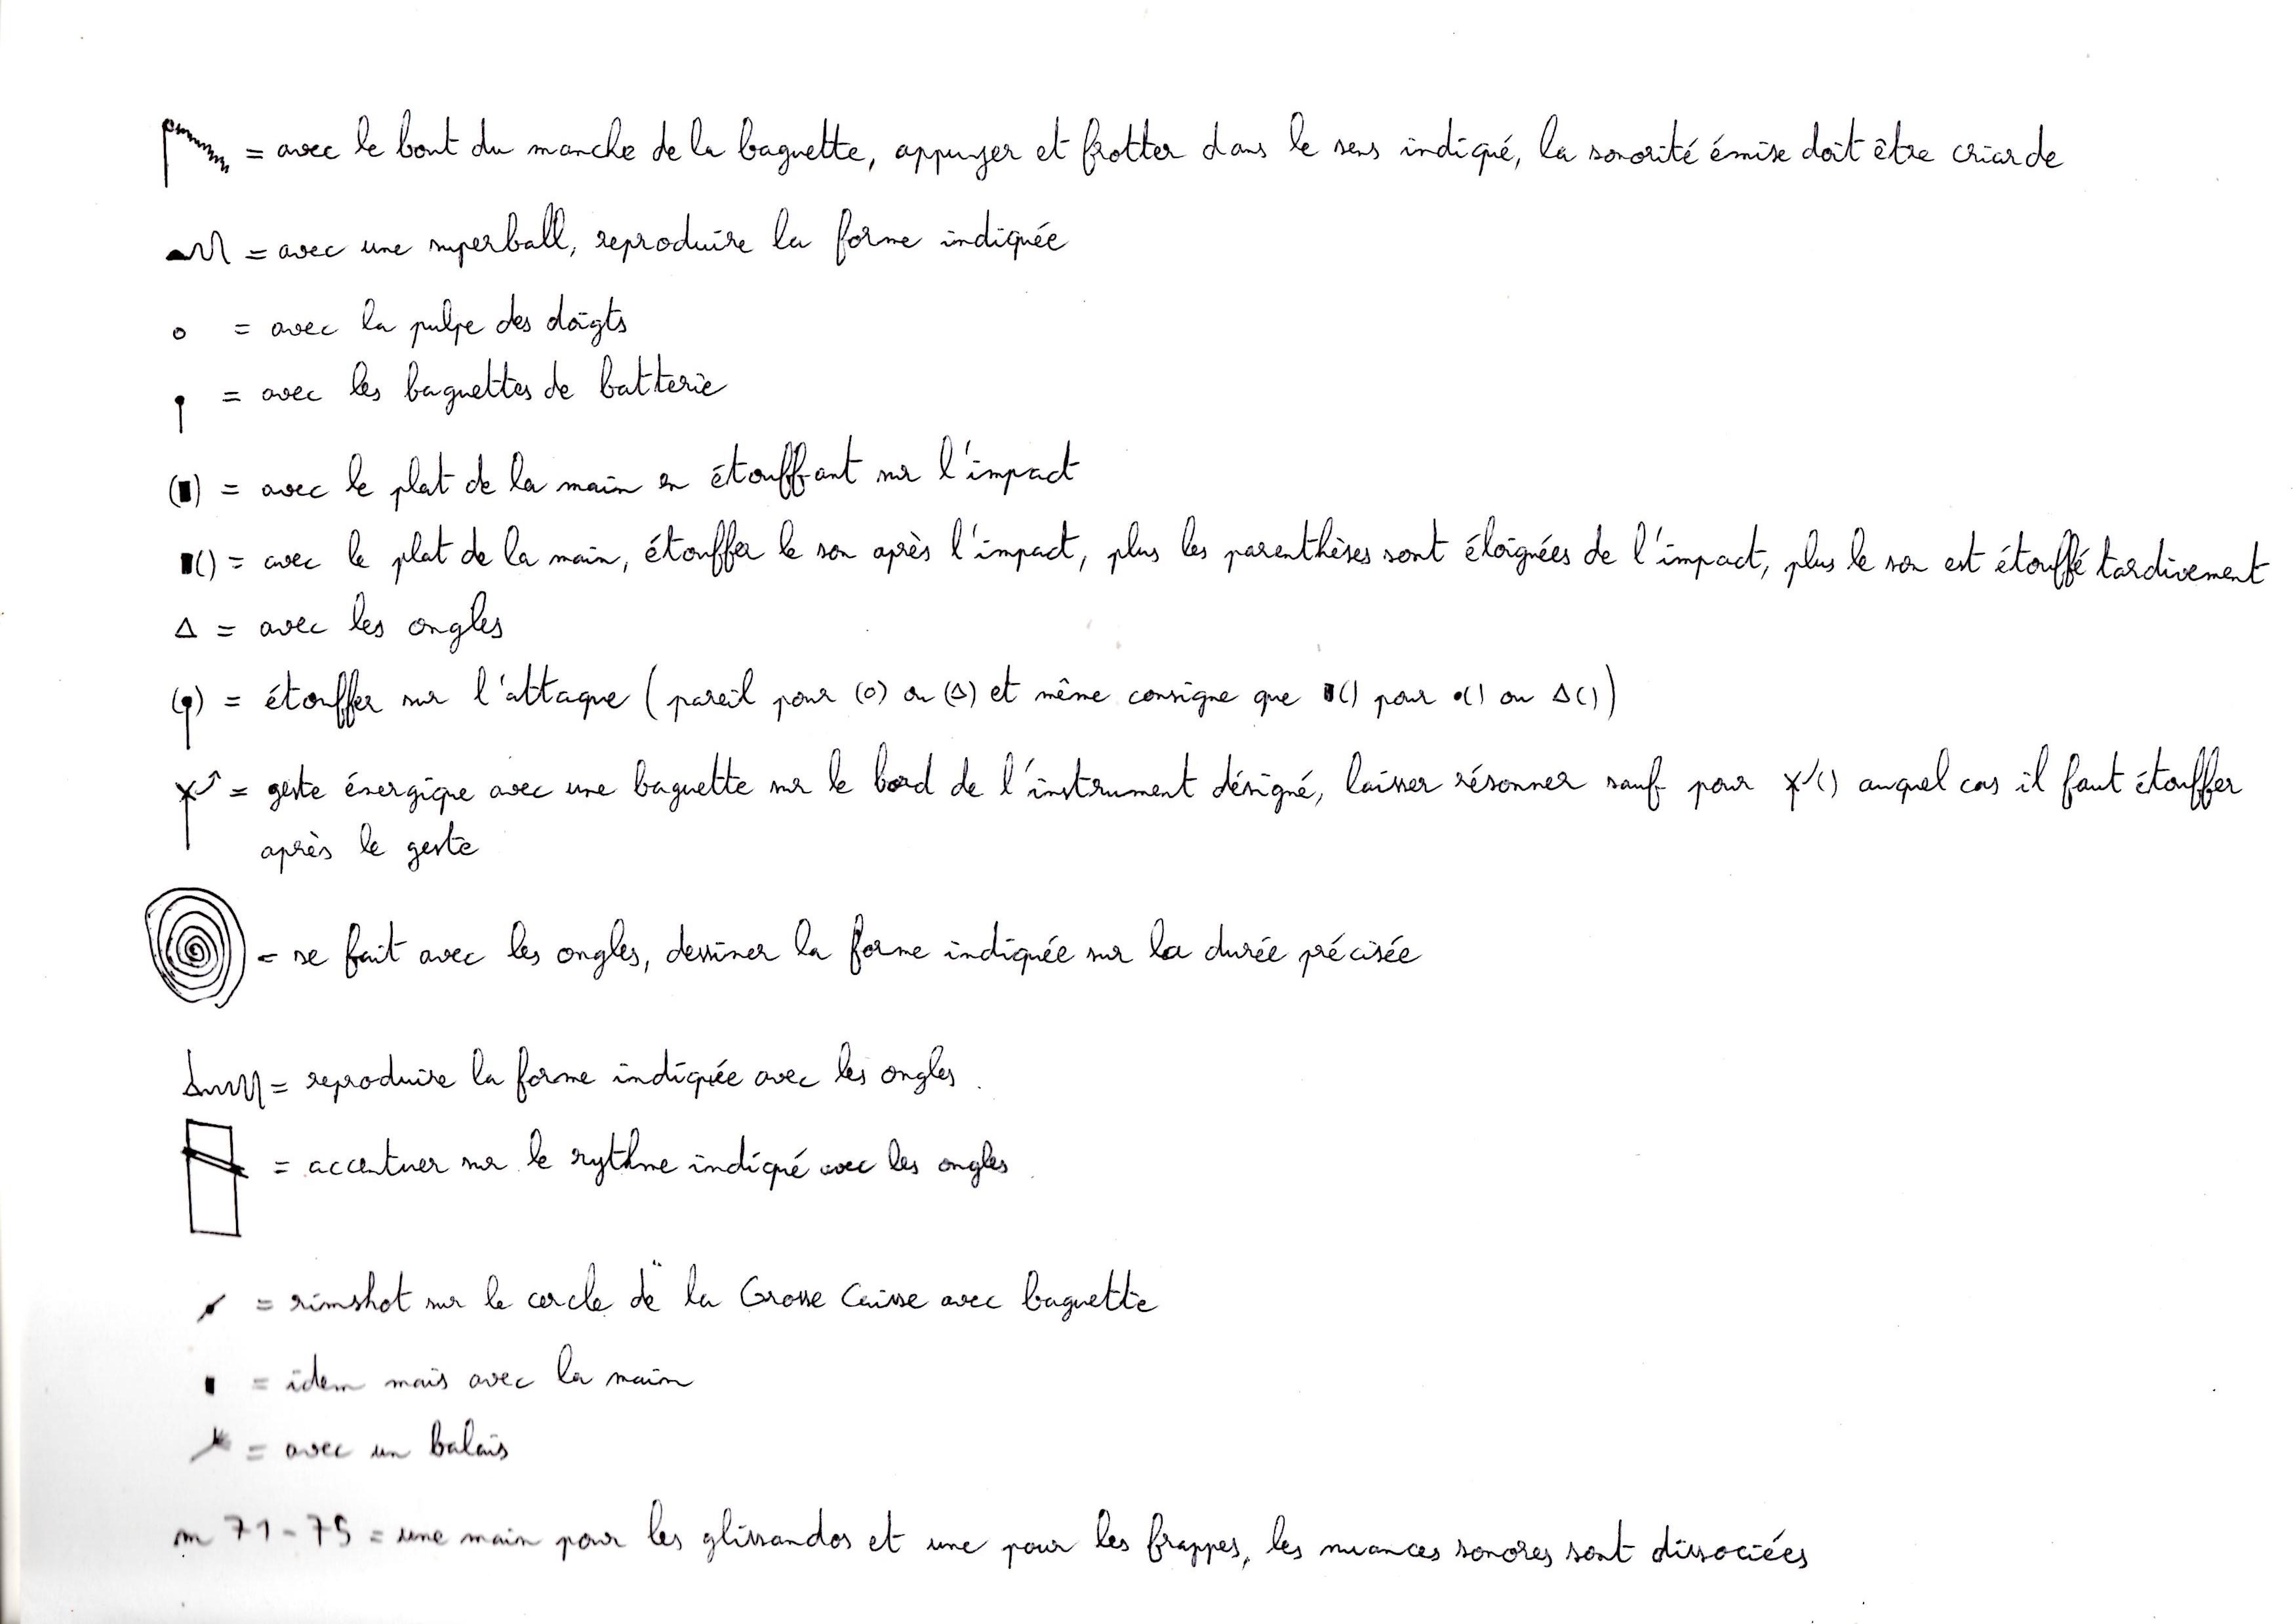 = avec le bout du manche de la baguette, appuyer et frotter dans le sens indiqué, la sonorité émise doit être criarde
= avec une superball, reproduire la forme indiquée
o = avec la pulpe des doigts
= avec les baguettes de batterie
(▮) = avec le plat de la main en étouffant sur l'impact
▮() = avec le plat de la main, étouffer le son après l'impact, plus les parenthèses sont éloignées de l'impact, plus le son est étouffé tardivement
Δ = avec les ongles
(•) = étouffer sur l'attaque (pareil pour (o) ou (Δ) et même consigne que ▮() pour •() ou Δ())
x = geste énergique avec une baguette sur le bord de l'instrument désigné, laisser résonner sauf pour x() auquel cas il faut étouffer
après le geste
= se fait avec les ongles, dessiner la forme indiquée sur la durée précisée
= reproduire la forme indiquée avec les ongles
= accentuer sur le rythme indiqué avec les ongles
= rimshot sur le cercle de la Grosse Caisse avec baguette
▮ = idem mais avec la main
= avec un balais
m 71-75 = une main pour les glissandos et une pour les frappes, les nuances sonores sont dissociées